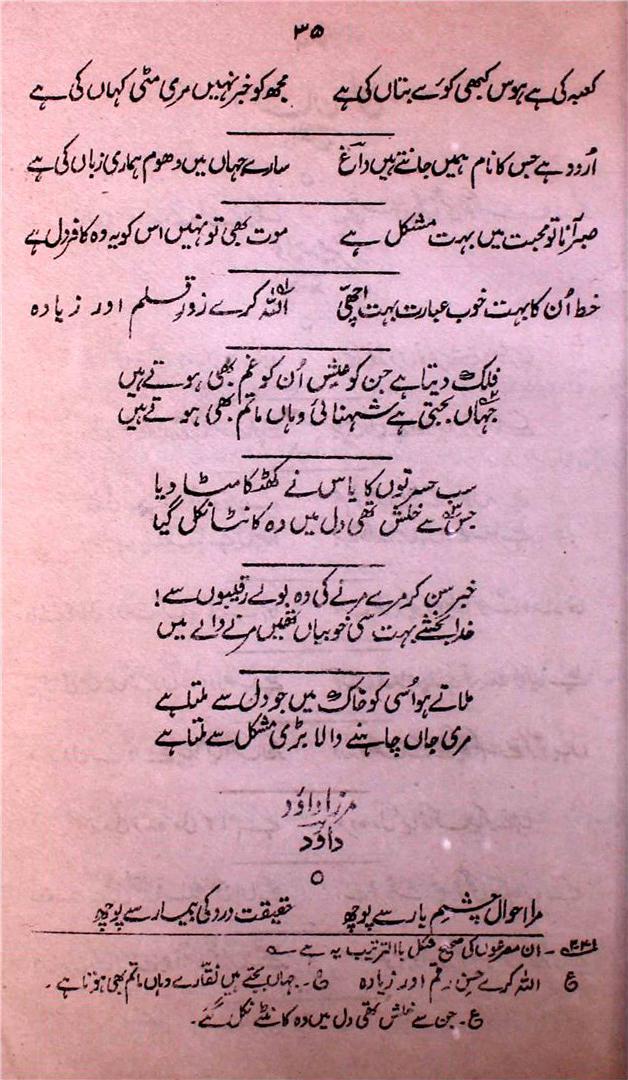 ۳۵
کعبہ کی ہے ہوس کبھی کوئے بتاں کی ہے مجھ کو خبر نہیں مری مٹی کہاں کی ہے
اُردو ہے جس کا نام ہمیں جانتے ہیں داغؔ سارے جہاں میں دھوم ہماری زباں کی ہے
صبر آنا تو محبت میں بہت مشکل ہے موت بھی تو نہیں اس کو یہ وہ کافر دل ہے
خط اُن کا بہت خوب عبارت بہت اچھی اللہ کرے زورِ قلم اور زیادہ
فلک دیتا ہے جن کو عیش اُن کو غم بھی ہوتے ہیں
جہاں بجتی ہے شہنائی وہاں ماتم بھی ہوتے ہیں
سب حسرتوں کا یاس نے کھٹکا مٹا دیا
جس سے خلش تھی دل میں وہ کانٹا نکل گیا
خبر سن کر مرے مرنے کی وہ بولے رقیبوں سے!
خدا بخشے بہت سی خوبیاں تھیں مرنے والے میں
ملاتے ہو اُسی کو خاک میں جو دل سے ملتا ہے
مری جاں چاہنے والا بڑی مشکل سے ملتا ہے
مرزا داؤد
داؤد
مرا احوال چشمِ یار سے پوچھ حقیقت درد کی بیمار سے پوچھ
ان مصرعوں کی صحیح شکل بالترتیب یہ ہے ۔
ع اللہ کرے حسنِ رقم اور زیادہ ع۔ جہاں بجتے ہیں نقّارے وہاں ماتم بھی ہوتا ہے ۔
ع ۔ جن سے خلش تھی دل میں وہ کانٹے نکل گئے۔